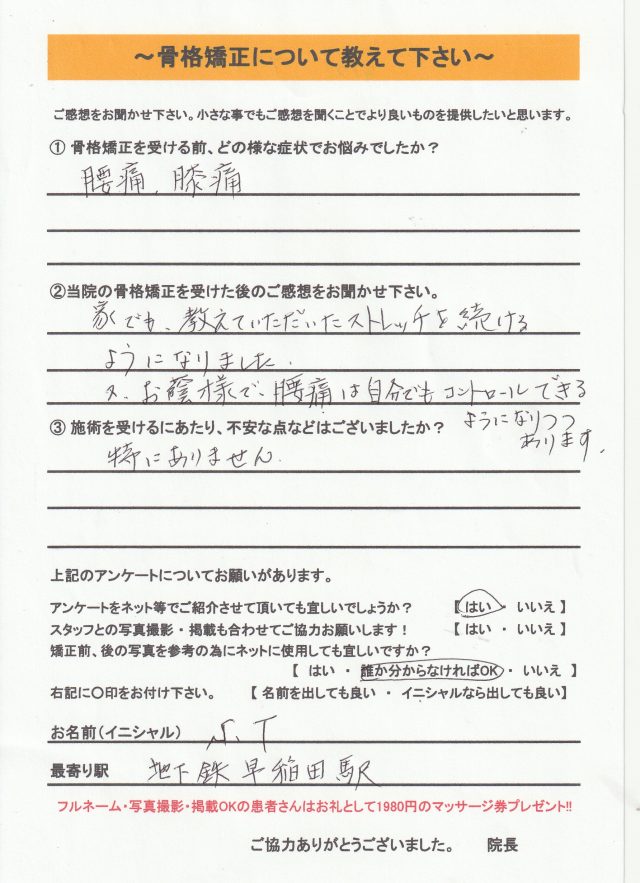 ～骨格矯正について教えて下さい～
ご感想をお聞かせ下さい。小さな事でもご感想を聞くことでより良いものを提供したいと思います。
① 骨格矯正を受ける前、どの様な症状でお悩みでしたか？
腰痛、膝痛
②当院の骨格矯正を受けた後のご感想をお聞かせ下さい。
家でも、教えていただいたストレッチを続ける
ようになりました.
又、お蔭様で、腰痛は自分でもコントロールできる
ようになりつつ
あります.
③ 施術を受けるにあたり、不安な点などはございましたか？
特にありません.
上記のアンケートについてお願いがあります。
アンケートをネット等でご紹介させて頂いても宜しいでしょうか？ 【 はい ・ いいえ 】
スタッフとの写真撮影・掲載も合わせてご協力お願いします！ 【 はい ・ いいえ 】
矯正前、後の写真を参考の為にネットに使用しても宜しいですか？
【 はい ・ 誰か分からなければOK ・ いいえ 】
右記に〇印をお付け下さい。 【 名前を出しても良い ・ イニシャルなら出しても良い】
お名前(イニシャル) T
最寄り駅 地下鉄早稲田駅
フルネーム・写真撮影・掲載OKの患者さんはお礼として1980円のマッサージ券プレゼント!!
ご協力ありがとうございました。 院長